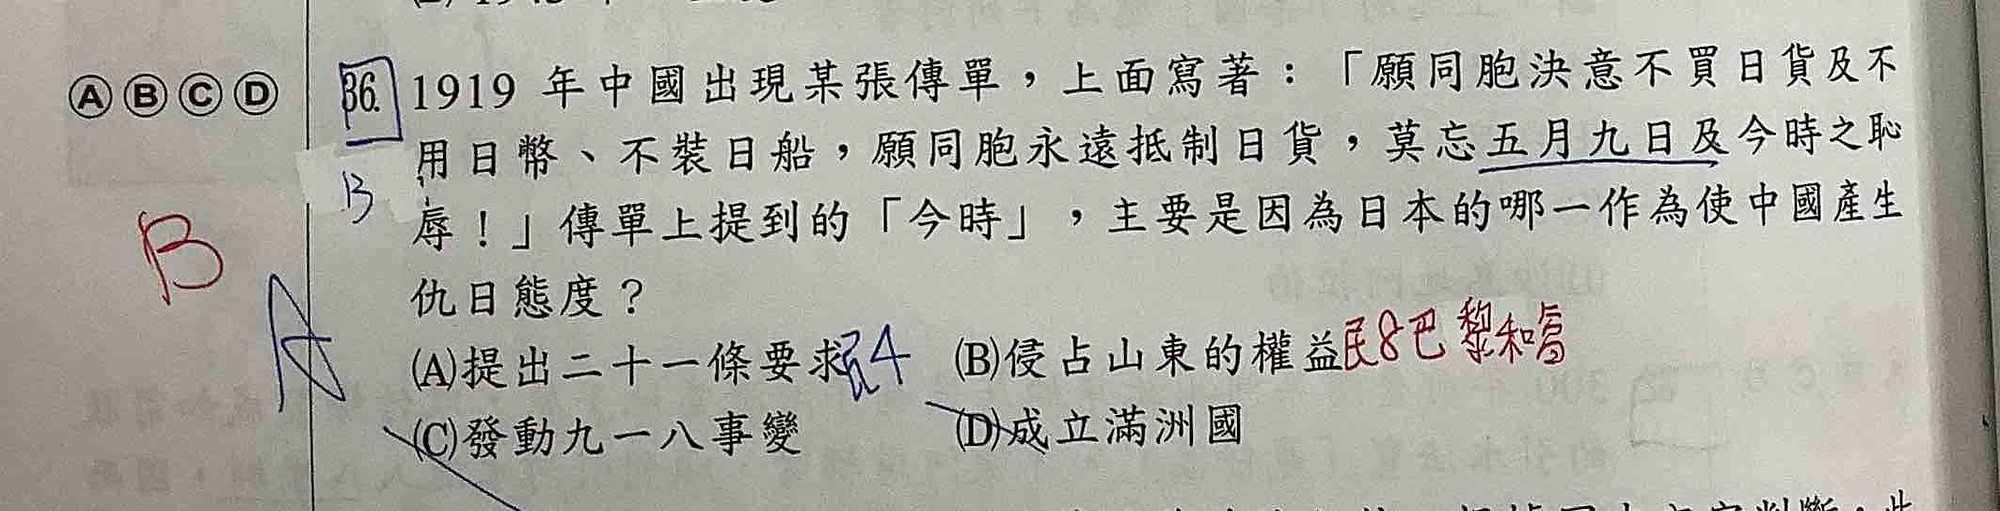 Ⓐ Ⓑ Ⓒ Ⓓ 36. 1919 年中國出現某張傳單，上面寫著：「願同胞決意不買日貨及不
用日幣、不裝日船，願同胞永遠抵制日貨，莫忘五月九日及今時之恥
B
辱！」傳單上提到的「今時」，主要是因為日本的哪一作為使中國產生
B
仇日態度？
A
(A)提出二十一條要求民4 (B)侵占山東的權益民8巴黎和會
(C)發動九一八事變 (D)成立滿洲國